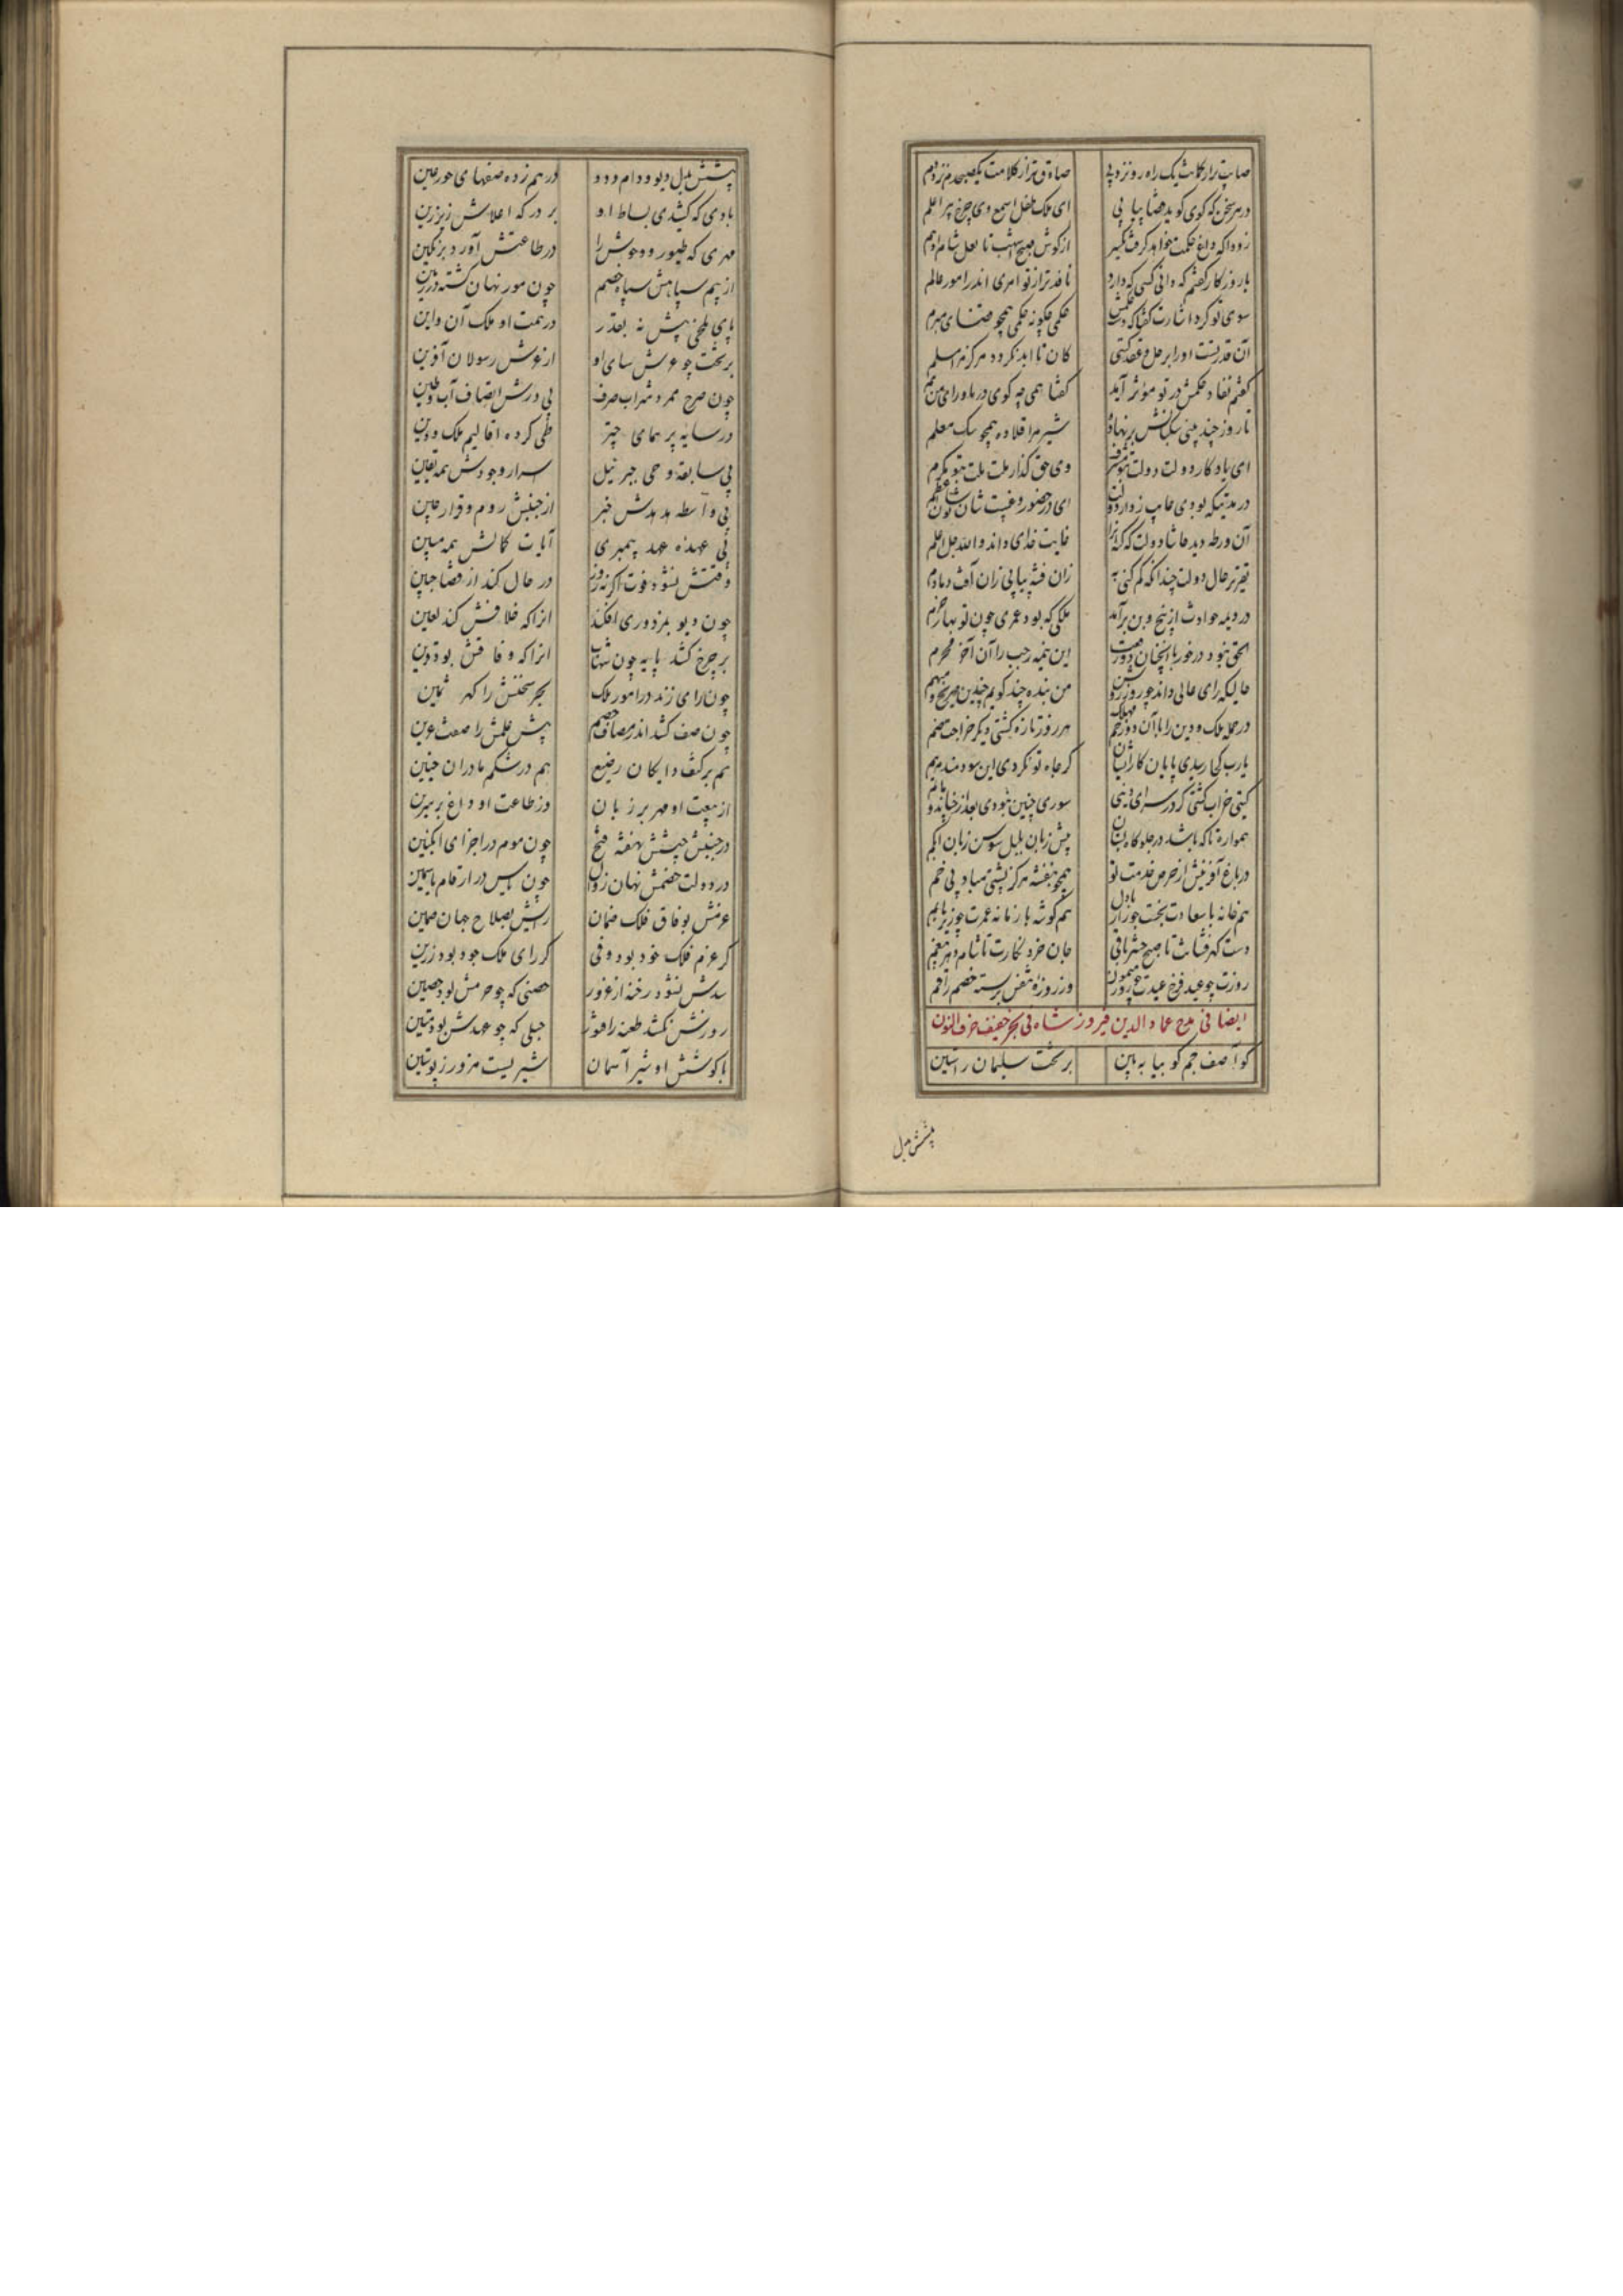 صایب تر از کمانت یک راه رو نزد پی صادق تر از کلامت یک صبحدم نزد دم
در هر سخن که گوی گوید قضا بیا پی ای ملک طفل اسمع وی چرخ پیر اعلم
زودا که داغ حکمت خواهد گرفت یکسر از گوش صبح اشهب تا نعل شام ادهم
با روزگار گفتم که دانی کسی که دارد نافذ تر از تو امری اندر امور عالم
سوی تو کرد اشارت گفتا که دست حکمش حکمی چگونه حکمی همچو قضای مبرم
آن قدرتست او را بر حل و عقد گیتی کان تا ابد نگردد هرگز مسلم
گفتم نفاذ حکمش در تو مؤثر آید گفتا همی چه گوی در ماورای من هم
تا روز چند بینی سگبانش بر نهاده شیر مرا قلاده همچو سگ معلم
ای یادگار دولت دولت بتو مشرف وی حق گذار ملت ملت بتو مکرم
در مدتیکه بودی غایب ز دار دولت ای در حضور و غیبت شان شگون معظم
آن ورطه دید حاشا دولت که که آنرا غایت خدای داند والله جل اعلم
تقریر حال دولت چندانکه کم کنی به زان فتنه بیاپی زان آفت دمادم
در دیمه حوادث از بیخ و بن برآمد ملکی که بود عمری چون نو بهار خرم
الحق نبود در خور با آنچنان دو رجعت این نیمه رجب را آن آخر محرم
حالیکه رای عالی داند چو روز روشن من بنده چند گویم چندین صریح و مبهم
در حمله ملک و دین را با آن دو زخم مهلک هر روز تازه گشتی دیگر جراحت ضم
یارب کجا رسیدی پایان کار ایشان گر جاه تو نکردی این سودمند مرهم
گیتی خراب گشتی گر در سرای دنیی سوری چنین نبودی بعد از چنان دو ماتم
همواره تا که باشد در جلوگاه بستان پیش زبان بلبل سوسن زبان ابکم
در باغ آفرینش از حرص خدمت تو همچو بنفشه هرگز پشتی مباد بی خم
هم خانه با سعادت بختت چو راز با دل هم گوشه با زمانه عمرت چو زیر با بم
دست گهرفشانت تا صبح حشر باقی جان خرد نگارت تا شام دهر منعم
روزت چو عید فرخ عیدت چو روز میمون وز روزه تنفس بر بسته خصم را فم
ایضا فی مدح عماد الدین فیروز شاه فی بحر خفیف حرف النون
کو آصف جم گو بیا به بین بر تخت سلیمان راستین
پیشش بدل
پیشش بدل دیو و دام و دد درهم زده صفهای حور عین
بادی که کشیدی بساط او بر درگه اعلاش زیر زین
مهری که طیور و وحوش را در طاعتش آورد بر نگین
از بیم سپاهش سپاه خصم چون مور نهان گشته در زمین
پای ملخی پیش نه بقدر در همت او ملک آن و این
بر تخت چو عرش سبای او از عرش رسولان آفرین
چون صرح ممرد شراب صرف بی درش انصاف آب و طین
در سایه پر همای چتر طی کرده اقالیم ملک و دین
بی سابقه وحی جبرئیل اسرار وجودش همه یقین
بی واسطه هدهدش خبر از جنبش روم و قرار چین
بی عهده عهد پیمبری آیات کمالش همه مبین
وقتش نشود فوت اگر نه روز در حال کند از قضا جبین
چون دیو بمزدوری افکند انرا که خلافش کند لعین
بر چرخ کشد پایه چون شهاب انرا که وفاقش بود قرین
چون رای زند در امور ملک بحر سخنش را گهر ثمین
چون صف کشد اندر مصاف خصم پیش علمش را صفت عرین
هم بر کتف دایگان رضیع هم در شکم مادران جنین
از بیعت او مهر بر زبان وز طاعت او داغ بر سرین
در جنبش جیشش نهفته فتح چون موم در اجزای انگبین
در دولت خصمش نهان زوال چون یاس در ارقام یاسمین
عزمش بوفاق فلک ضمان رایش بصلاح جهان ضمین
گر عزم فلک خود بود وفی گر رای ملک خود بود رزین
سدش نشود رخنه از غرور حصنی که چو حزمش بود حصین
روزش نکشد طعنه را فتور حبلی که چو عهدش بود متین
با کوشش او شیر آسمان شیریست مزور ز پوستین